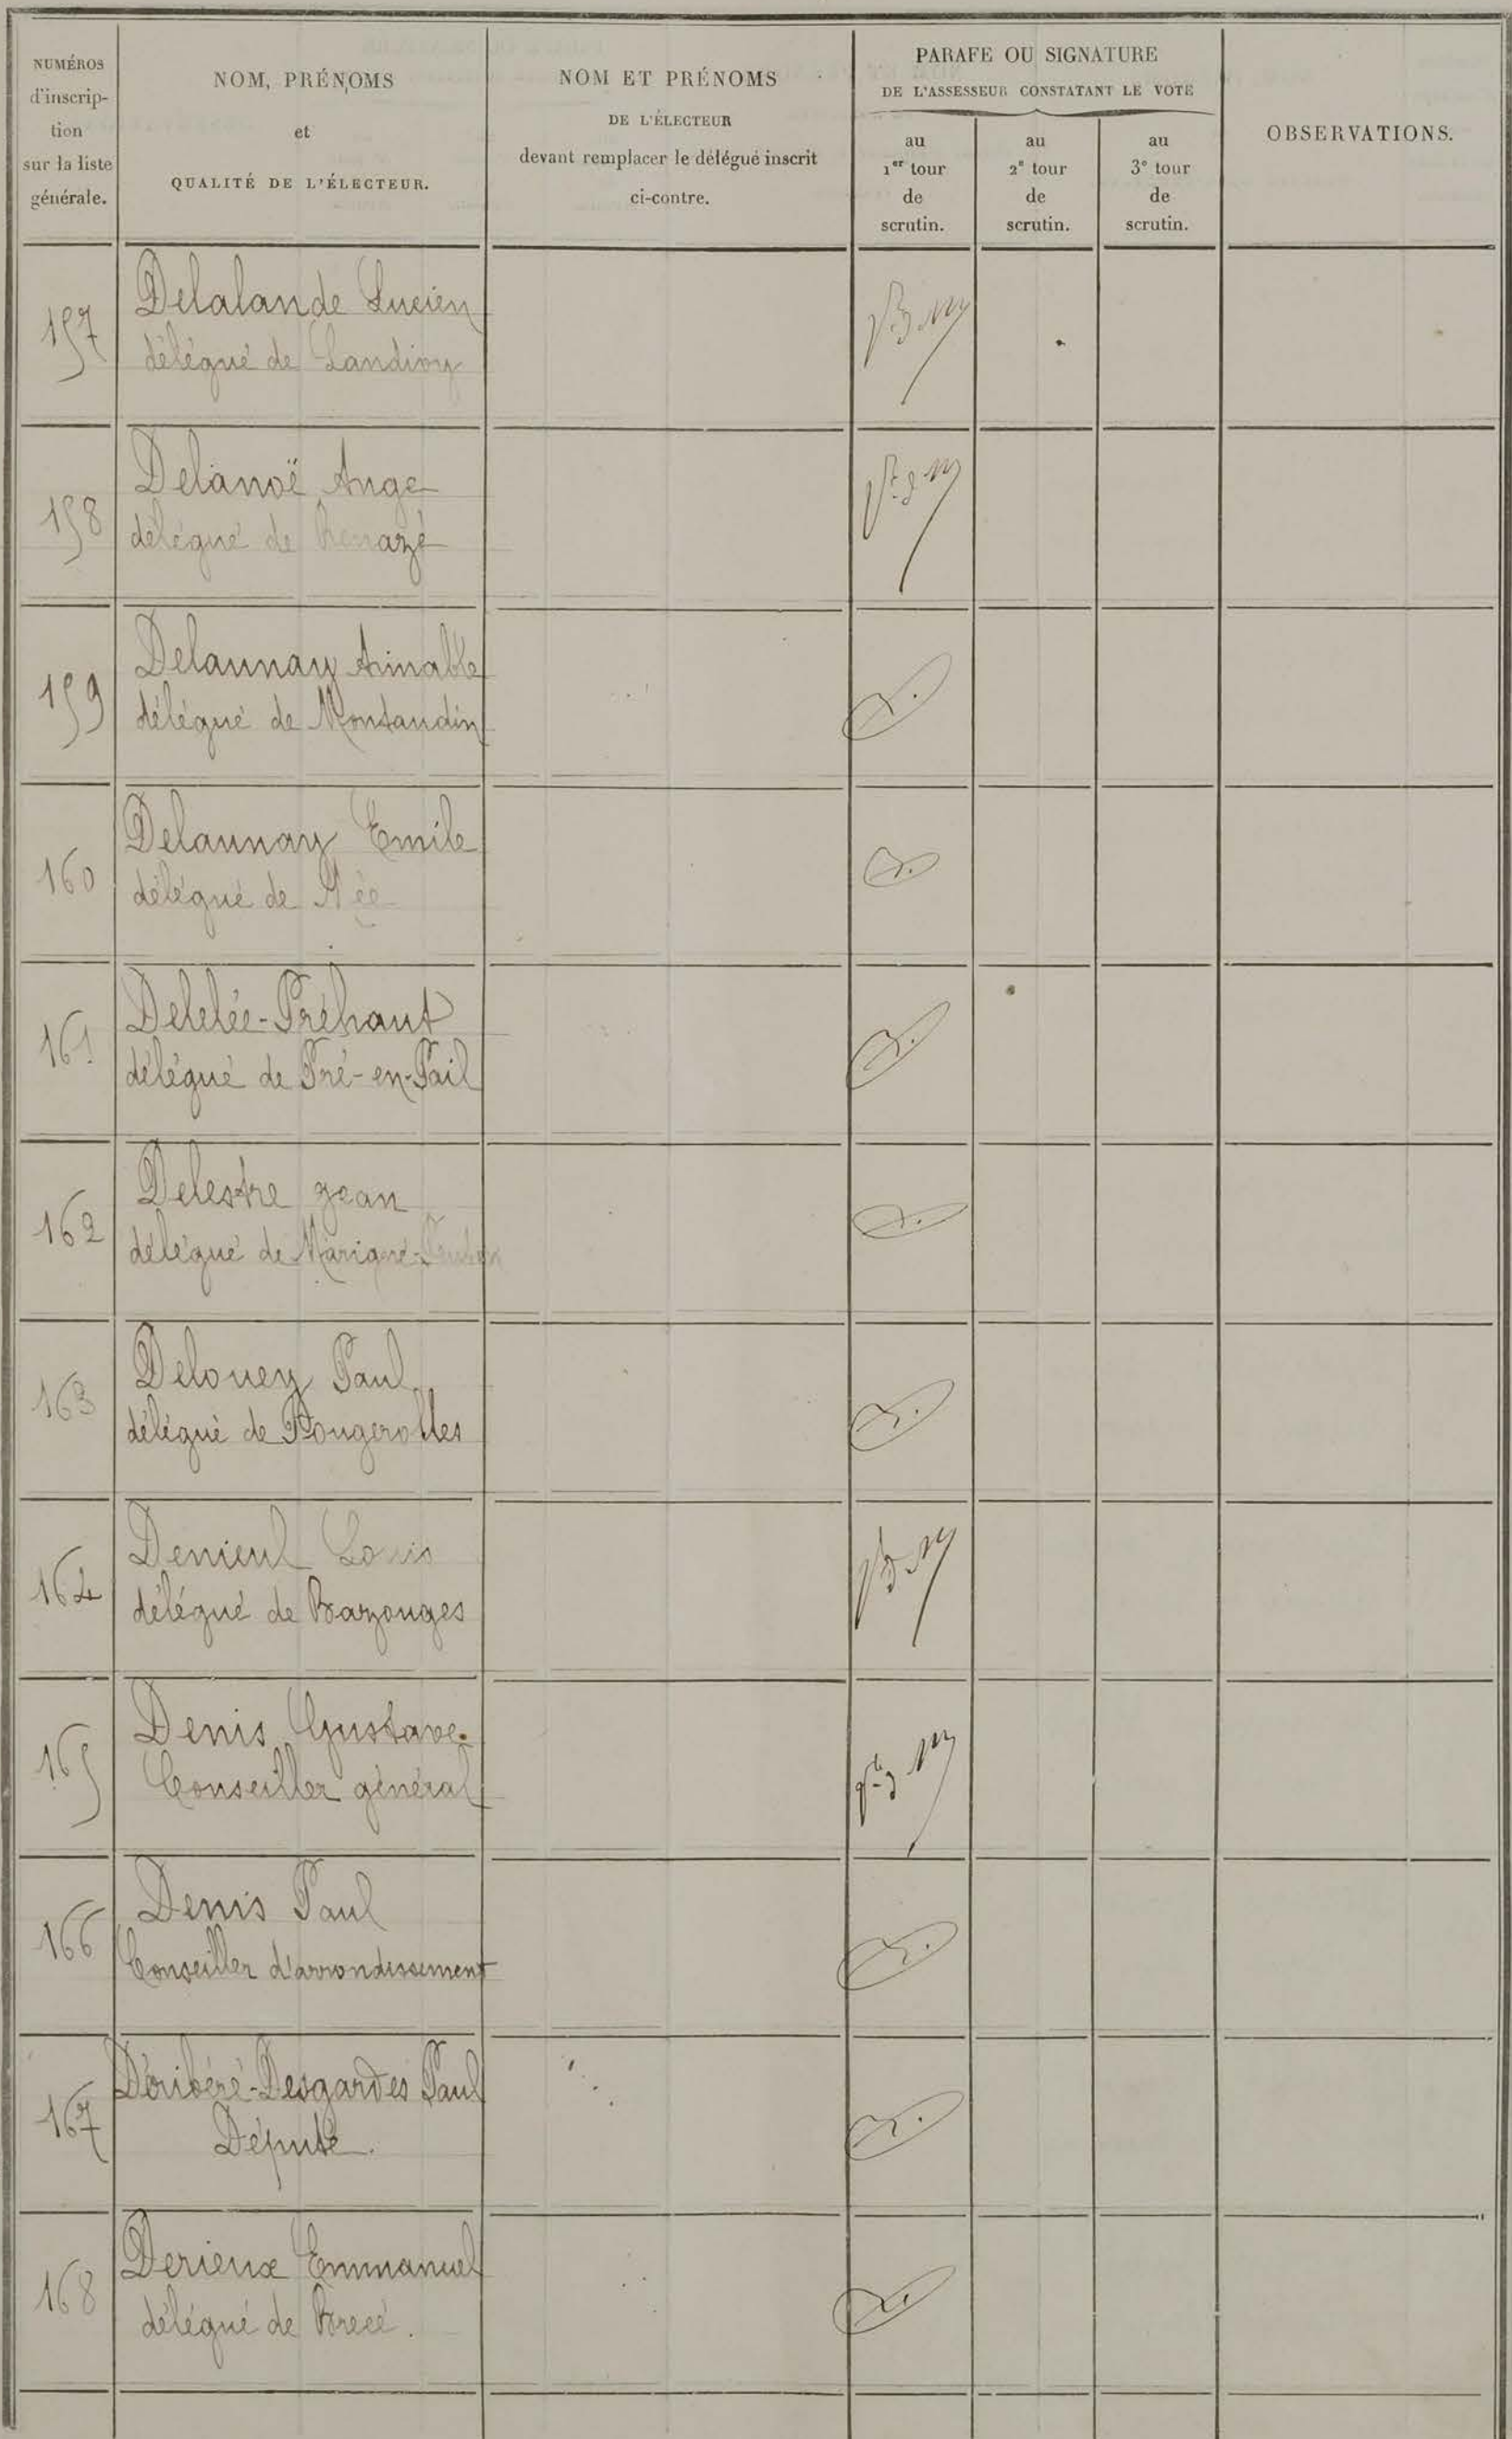 NUMÉROS
d'inscrip-
tion
sur la liste
générale.
NOM, PRÉNOMS
et
QUALITÉ DE L'ÉLECTEUR.
NOM ET PRÉNOMS
DE L'ÉLECTEUR
devant remplacer le délégué inscrit
ci-contre.
PARAFE OU SIGNATURE
DE L'ASSESSEUR CONSTATANT LE VOTE
au
1er tour
de
scrutin.
au
2e tour
de
scrutin.
au
3e tour
de
scrutin.
OBSERVATIONS.
157
Delalande Lucien
délégué de Landivy
158
Delanoë Ange
délégué de Renazé
159
Delaunay Aimable
délégué de Montaudin
160
Delaunay Emile
délégué de Mée
161
Delelée-Préhaut
délégué de Pré-en-Pail
162
Delestre Jean
délégué de Marigné-Peuton
163
Delouey Paul
délégué de Fougerolles
164
Denieul Louis
délégué de Bazouges
165
Denis Gustave.
Conseiller général
166
Denis Paul
Conseiller d'arrondissement
167
Déribéré-Desgardes Paul
Député.
168
Derieux Emmanuel
délégué de Brecé.